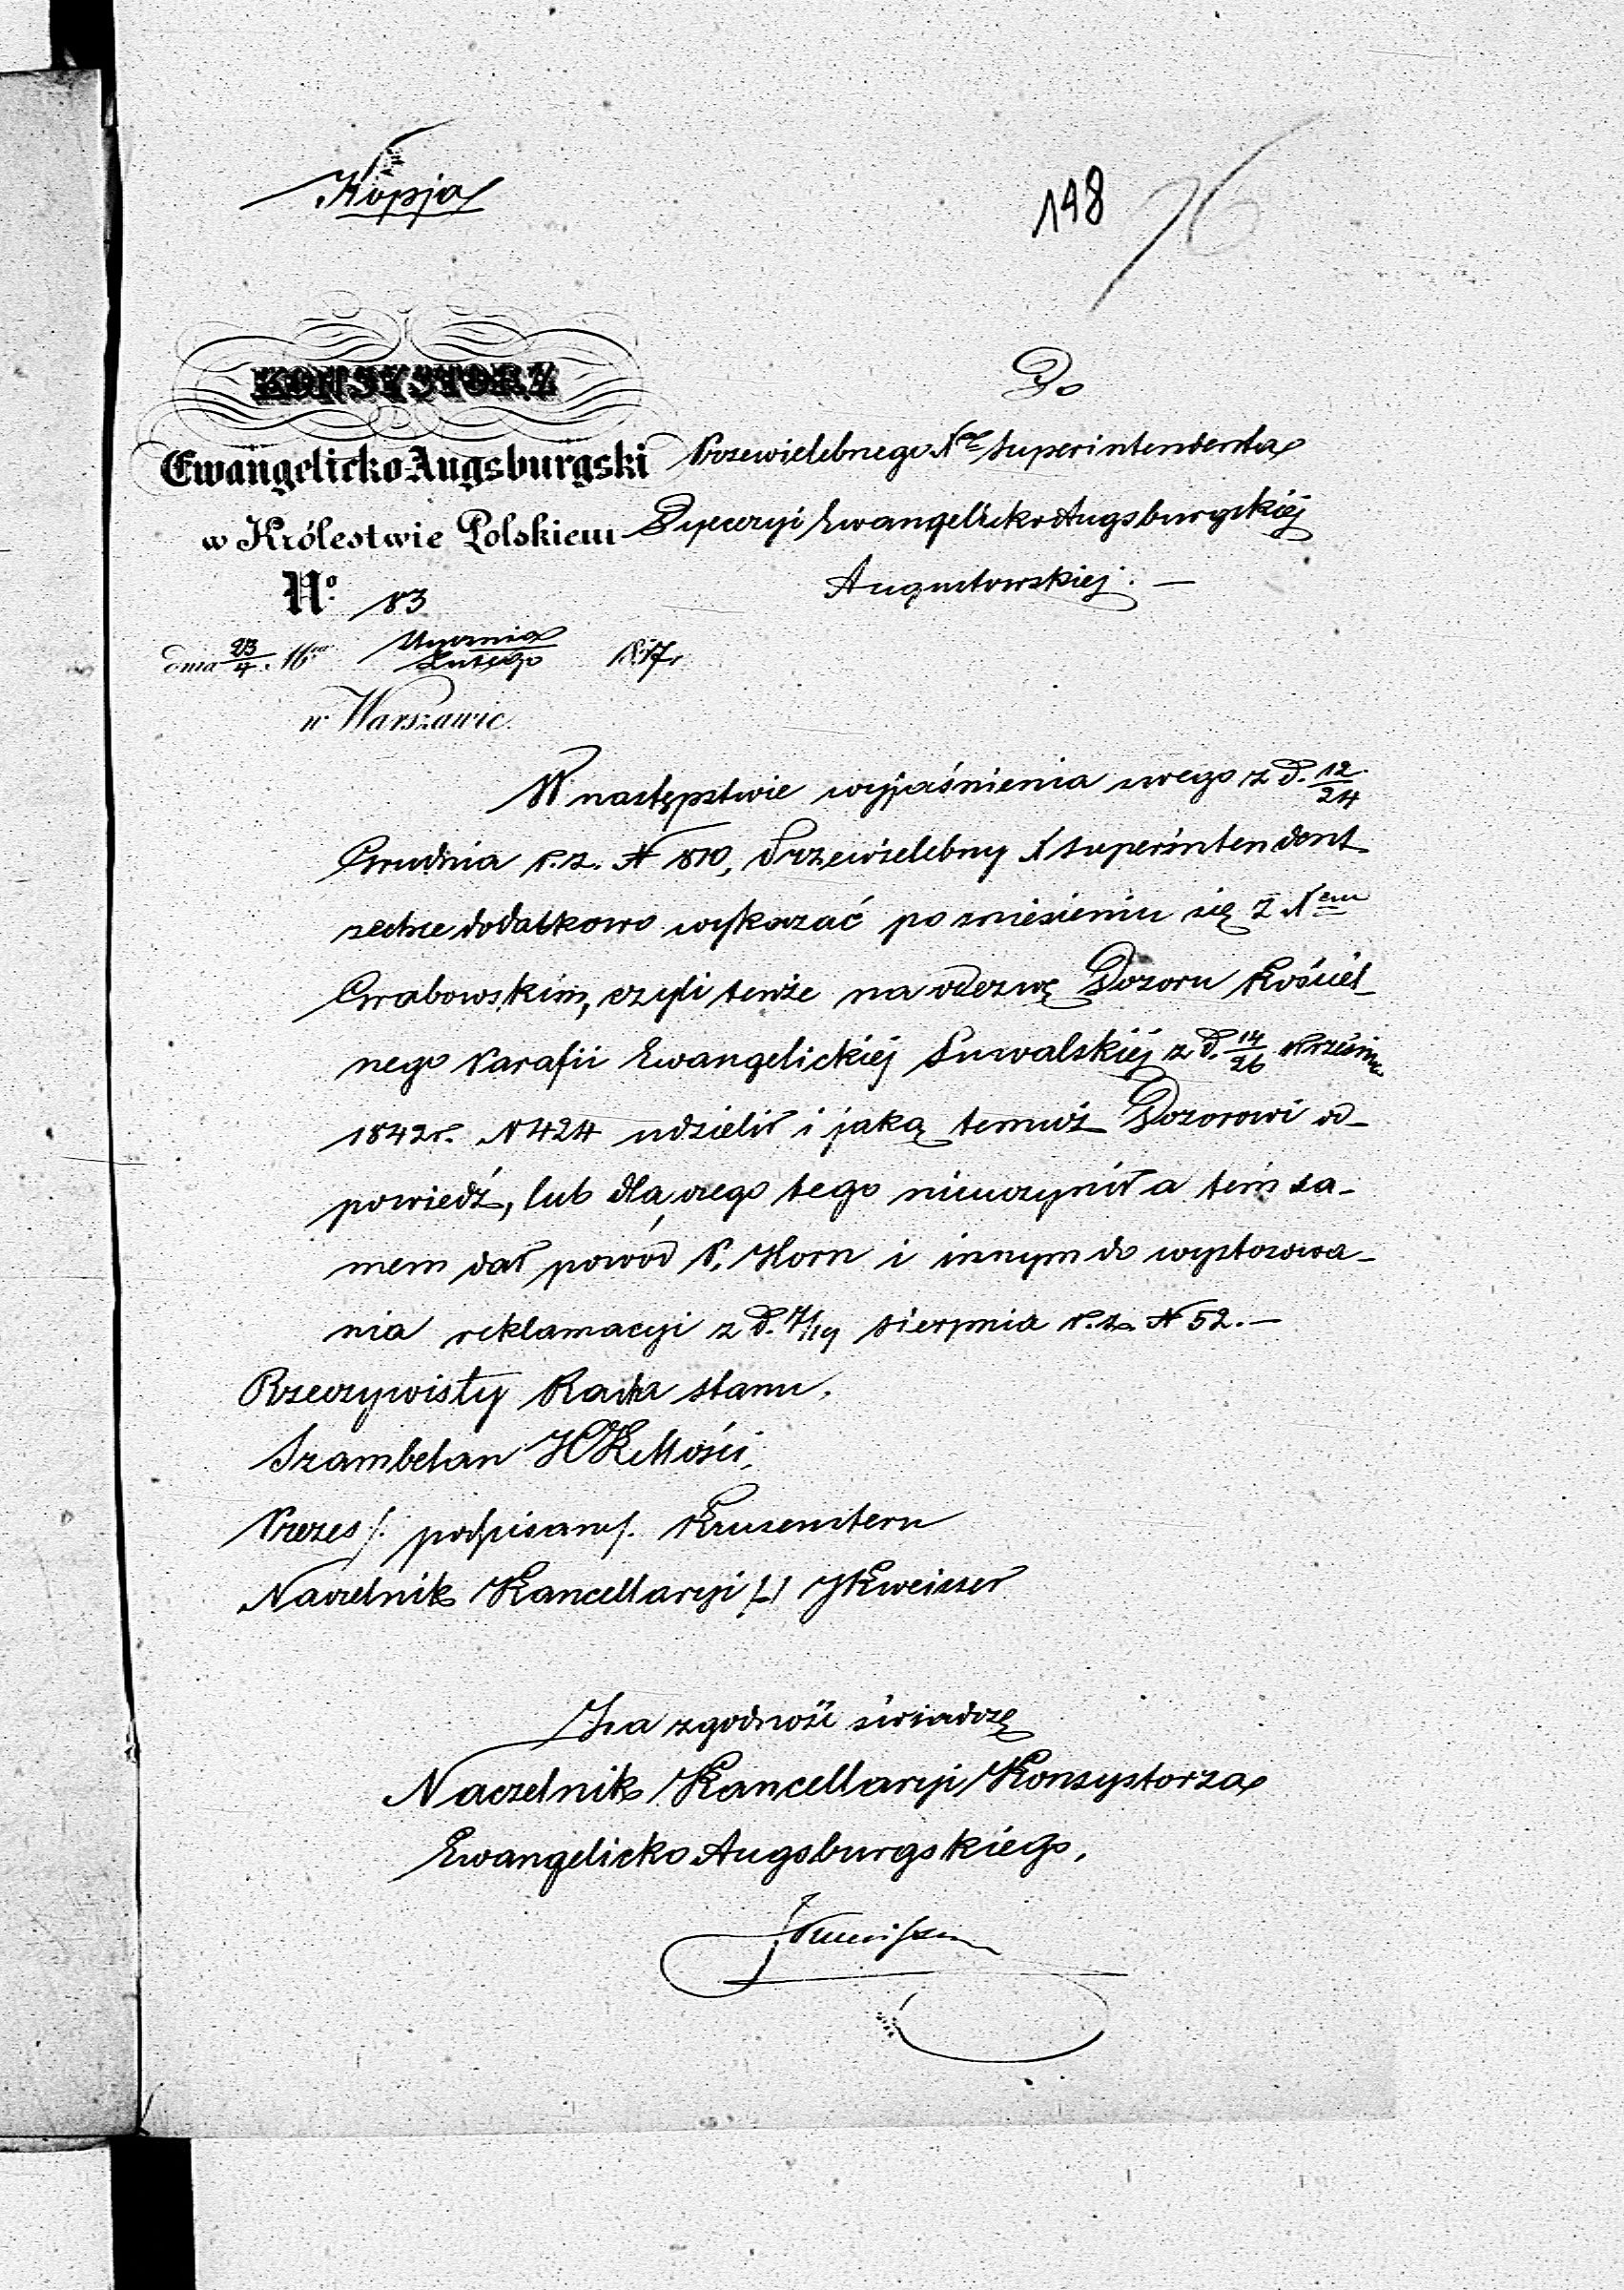 Kopja
148
76
KONSYSTORZ
Ewangelicko-Augsburgski
w Królestwie Polskiem
Nº 83
dnia 23/4 Mca Stycznia/Lutego 1847 r
w Warszawie.
Do
Przewielebnego Xa Superintendenta
Dyecezyi Ewangelicko Augsburgskiéj
Augustowskiej. —
W następstwie wyjaśnienia swego z d. 12/24
Grudnia r. z. N 810, Przewielebny X Superintendent
zechce dodatkowo wykazać po zniesieniu się z Xem
Grabowskim, czyli tenże na odezwę Dozoru Kościel-
nego Parafii Ewangelickiéj Suwalskiéj z d. 14/26 Września
1842 r. N 424 udzielił i jaką temuż Dozorowi od-
powiedź, lub dla czego tego nieuczynił a tém sa-
mem dał powód P. Horn i innym do wystosowa-
nia reklamacyi z d. 7/19 sierpnia r. z. N 52. —
Rzeczywisty Radca stanu,
Szambelan JKMości,
Prezes /. podpisano /. Krusenstern
Naczelnik Kancellaryi /-/
Za zgodność świadczę
Naczelnik Kancellaryi Konsystorza
Ewangelicko Augsburgskiego,